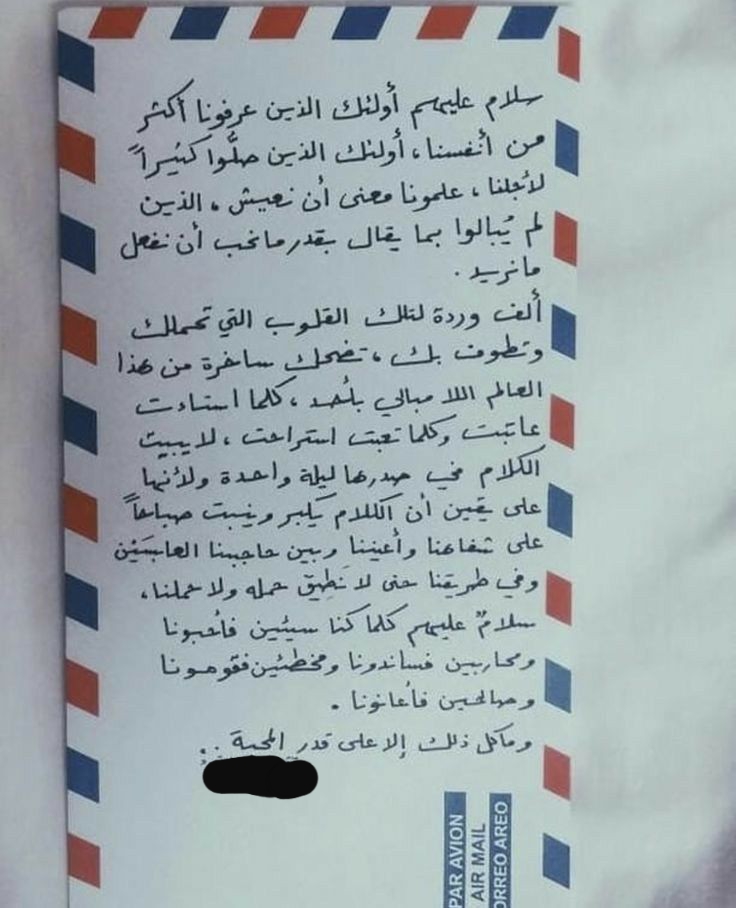 سلام عليهم أولئك الذين عرفونا أكثر
من أنفسنا، أولئك الذين صلُّوا كثيراً
لأجلنا، علمونا معنى أن نعيش، الذين
لم يُبالوا بما يقال بقدر مانحب أن نفعل
مانريد.
ألف وردة لتلك القلوب التي تحملك
وتطوف بك، تضحك ساخرة من هذا
العالم اللا مبالي بأحد، كلما استاءت
عاتبت وكلما تعبت استراحت، لا يبيت
الكلام في صدرها ليلة واحدة ولأنها
على يقين أن الكلام يكبر وينبت صباحاً
على شفاهنا وأعيننا وبين حاجبينا العابسَيْن
وفي طريقنا حتى لا نَطِيقْ حمله ولا حملنا،
سلامٌ عليهم كلما كنا سيئين فأحبونا
ومحاربين فساندونا ومخطئين فقومونا
وصالحين فأعانونا.
وماكل ذلك إلا على قدر المحبة..
PAR AVION
AIR MAIL
ORREO AREO